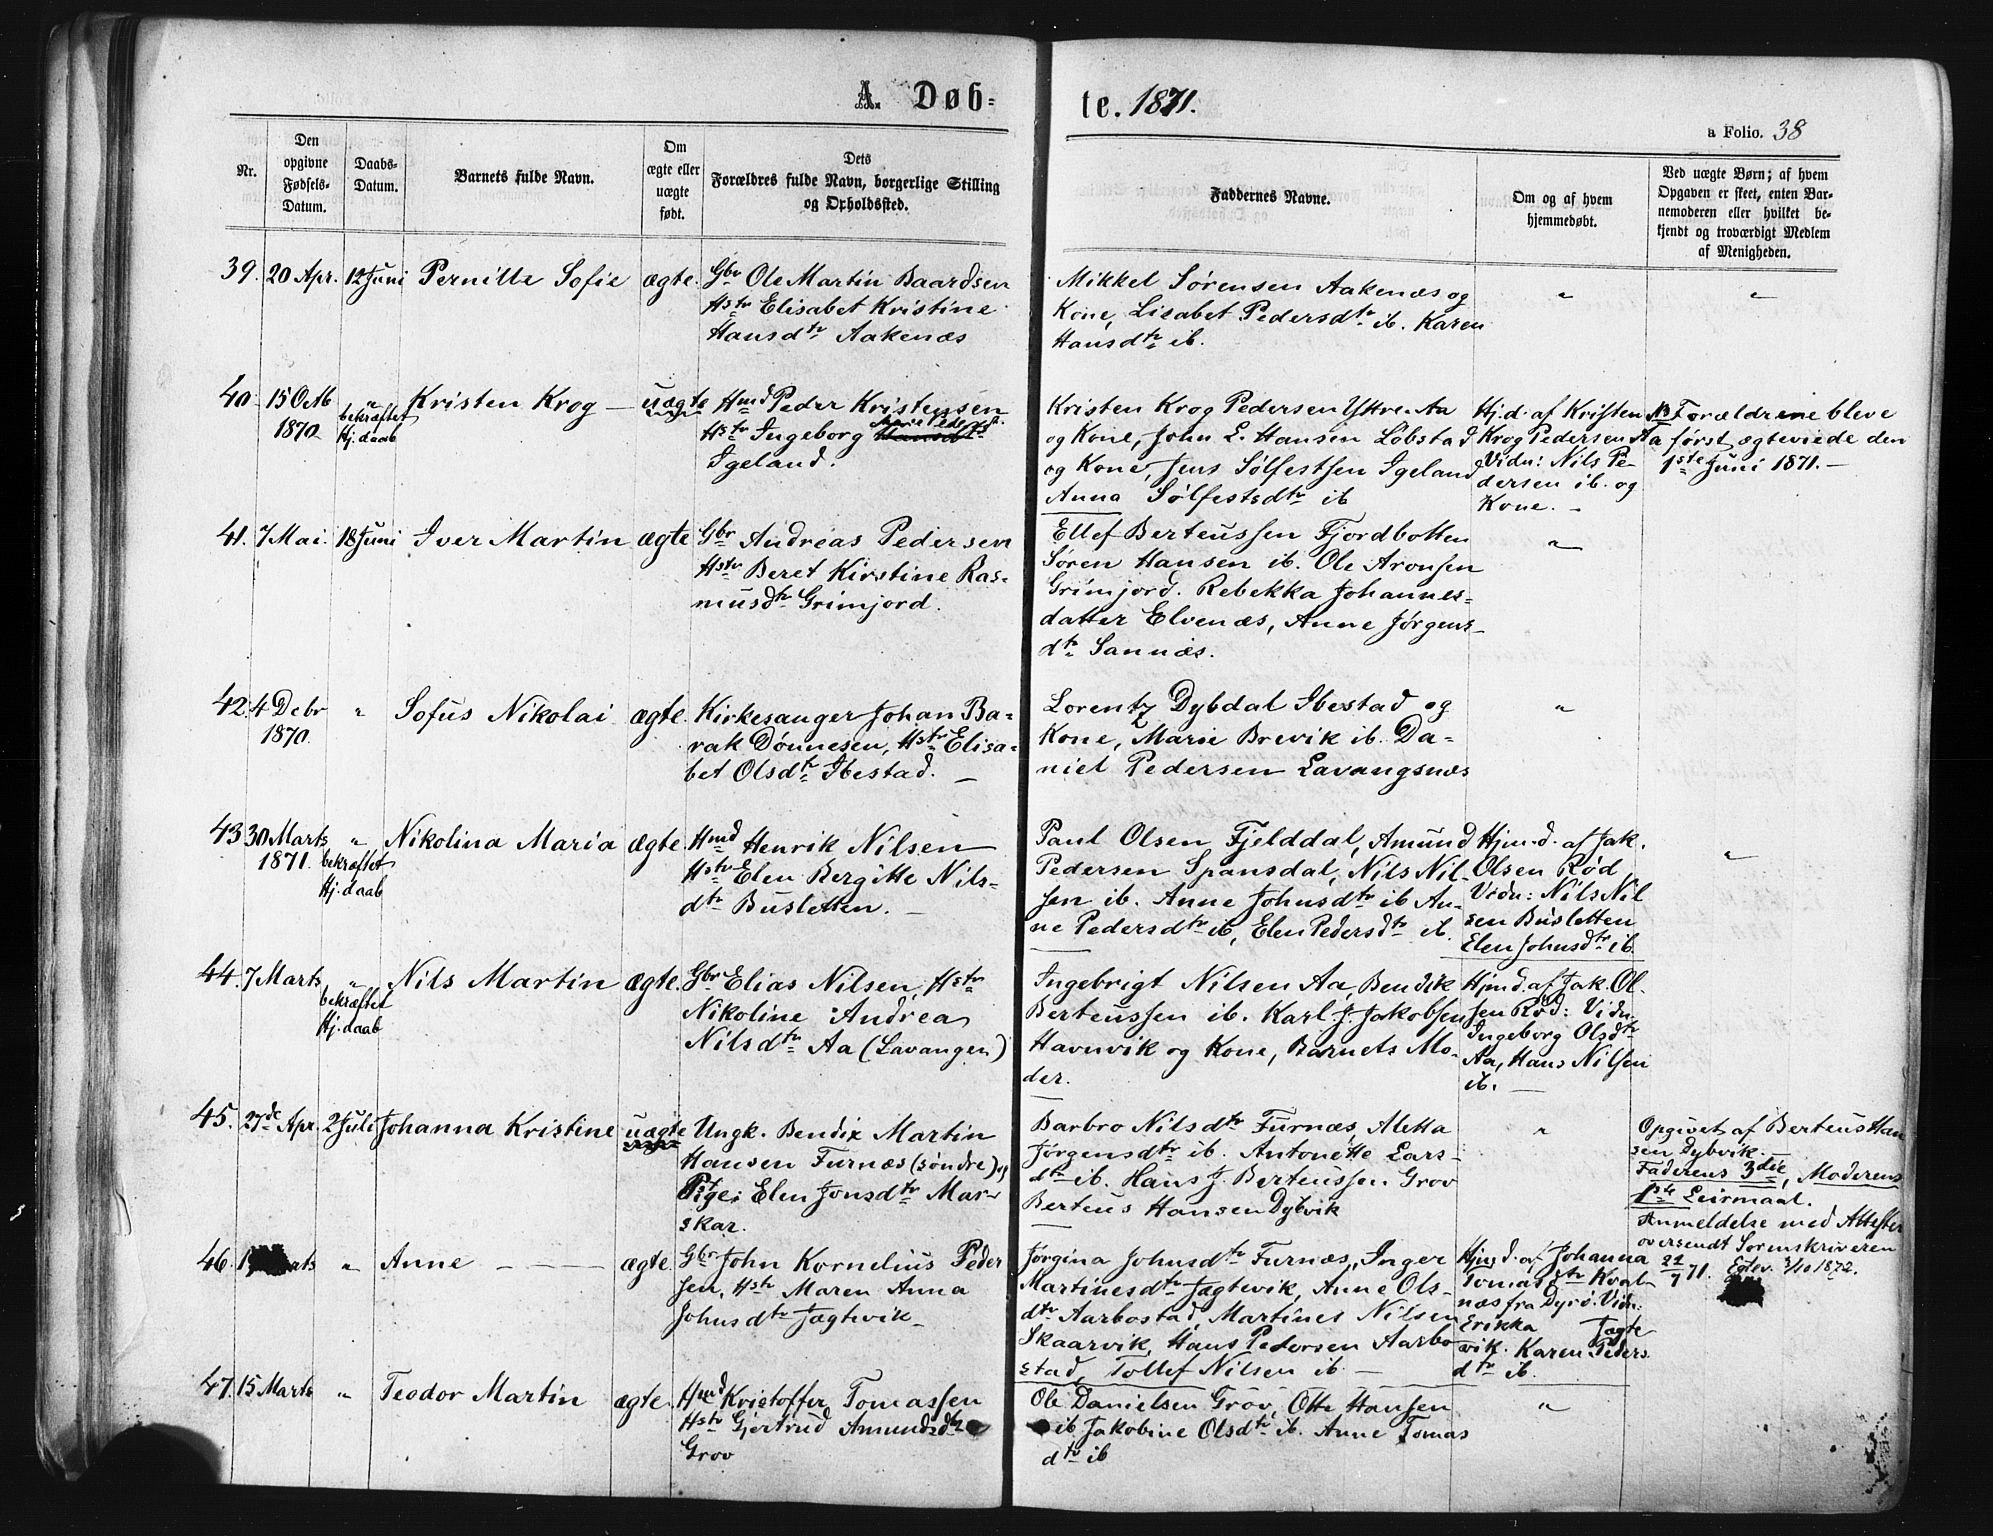 A. Døb=
te. 1871.
a Folio. 38
Nr.
Den
opgivne
Fødsels-
Datum.
Daabs-
Datum.
Barnets fulde Navn.
Om
ægte eller
uægte
født.
Dets
Forældres fulde Navn, borgerlige Stilling
og Opholdssted.
Faddernes Navne.
Om og af hvem
hjemmedøbt.
Ved uægte Børn; af hvem
Opgaven er skeet, enten Bar-
nemoderen eller hvilket be-
kjendt og troværdigt Medlem
af Menigheden.
39. 20 Apr. 12 Juni Pernille Sofie ægte.
Gbr Ole Martin Baardsen
Hstr Elisabet Kristine
Hansdtr Aakenæs
Mikkel Sørensen Aakenæs og
Kone, Lisabet Pedersdtr ib. Karen
Hansdtr ib.
"
"
40. 15 Octb
1870
"
bekræftet
Hj.daab
Kristen Krog — uægte
Hmd Peder Kristensen
Hstr Ingeborg Marie Pedersdtr
Igeland.
Kristen Krog Pedersen Ytre Aa
og Kone, John E. Hansen Løbstad
og Kone, Jens Sølfestsen Igeland
Anna Sølfestsdtr ib
Hj.d. af Kristen
Krog Pedersen Aa
Vidn: Nils Pe-
dersen ib. og
Kone. -
NB Forældrene bleve
først ægteviede den
1ste Juni 1871. —
41. 7 Mai. 18 Juni Iver Martin ægte
Gbr Andreas Pedersen
Hstr Beret Kirstine Ras-
musdtr Grimjord.
Ellef Berteussen Fjordbotten
Søren Hansen ib. Ole Aronsen
Grimjord. Rebekka Johannes=
datter Elvenæs, Anne Jørgens-
dtr Sannæs.
"
42. 4 Debr
1870.
" Sofus Nikolai ægte.
Kirkesanger Johan Ba-
rak Dønnesen, Hstr Elisa-
bet Olsdtr Ibestad. —
Lorentz Dybdal Ibestad og
Kone, Marie Brevik ib. Da-
niel Pedersen Lavangsnæs
"
43. 30 Marts
1871.
"
bekræftet
Hj.daab
Nikolina Maria ægte
Hmd Henrik Nilsen
Hstr Elen Bergitte Nils-
dtr Busletten. —
Paul Olsen Fjelddal, Amund
Pedersen Spansdal, Nils Nil-
sen ib. Anne Johnsdtr ib An-
ne Pedersdtr ib, Elen Pedersdtr ib.
Hjm.d. af Jak.
Olsen Rød
Vidn: Nils Nil
sen Busletten
Elen Johnsdtr ib.
"
44. 7 Marts
"
bekræftet
Hj.daab
Nils Martin ægte.
Gbr Elias Nilsen, Hstr
Nikoline Andrea
Nilsdtr Aa (Lavangen)
Ingebrigt Nilsen Aa, Bendik
Berteussen ib. Karl J. Jakobsen
Havnvik og Kone, Barnets Mo-
der.
Hjmd. af Jak. Ol-
sen Rød: Vidn
Ingeborg Olsdtr
Aa, Hans Nilsen
ib. —
45. 27de Apr. 2 Juli Johanna Kristine uægte
Ungk. Bendix Martin
Hansen Furnæs (søndre) og
Pige: Elen Jonsdtr Mar-
skar.
Barbro Nilsdtr Furnæs, Aletta
Jørgensdtr ib. Antonette Lars-
dtr ib. Hans J. Berteussen Grov
Berteus Hansen Dybvik
"
Opgivet af Berteus Han
sen Dybvik.
Faderens 3die, Moderens
1ste Leirmaal.
Anmeldelse med Attester
oversendt Sorenskriveren
22/7 71. 3/10 1872.
46. " Anne — — — ægte
Gbr John Kornelius Peder
sen, Hstr Maren Anna
Johnsdtr Jægtevik-
Jørgina Johnsdtr Furnæs, Inger
Martinesdtr Jægtevik, Anne Ols-
dtr Aarbostad, Martines Nilsen
Skaarvik, Hans Pedersen Aarbo
stad, Tollef Nilsen ib. —
Hjmd. af Johanna
Tomasdtr Kval
næs fra Dyrø. Vidn:
Erikka Jægte
vik. Karen Peders
dtr ib.
47. 15 Marts " Teodor Martin ægte.
Hmd Kristoffer Tomassen
Hstr Gjertrud Amundsdtr
Grov
Ole Danielsen Grov, Otte Hansen
ib Jakobine Olsdtr ib. Anne Tomas
dtr ib
"